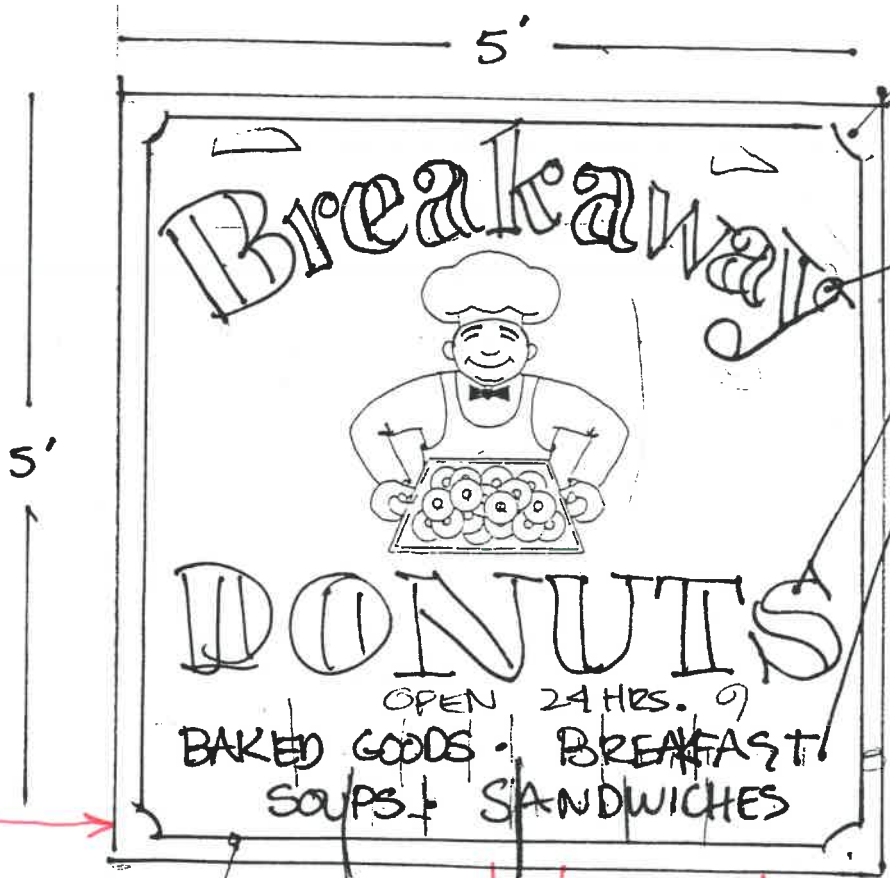 5'
Breakaway
5'
DONUTS
OPEN 24 HRS.
BAKED GOODS · BREAKFAST
SOUPS & SANDWICHES